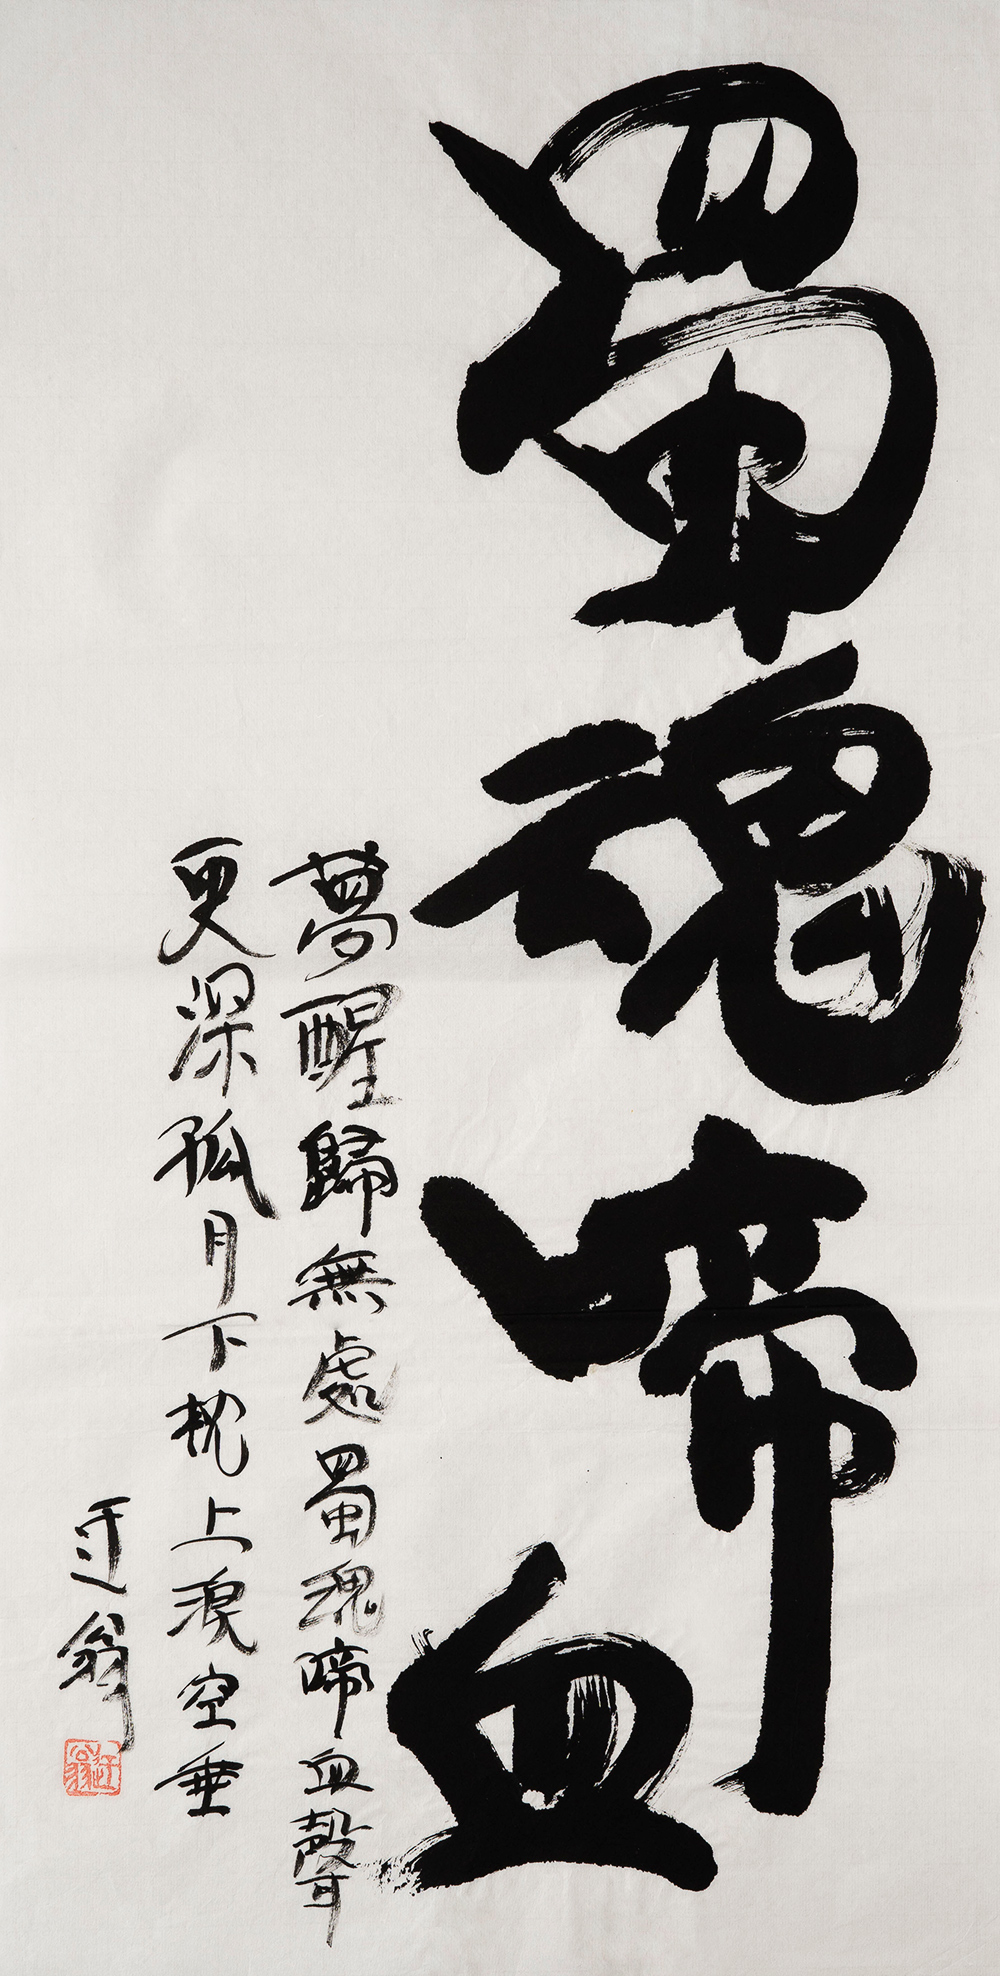 蜀魂啼血
夢醒歸無處蜀魂啼血聲
更深孤月下枕上淚空垂
迂翁
迂翁